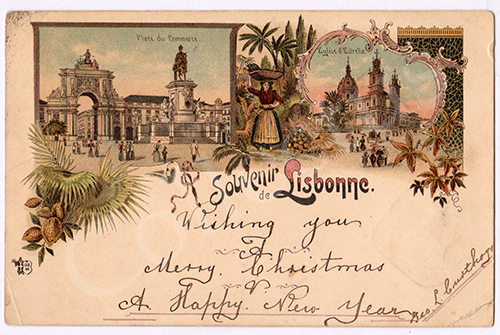 Place du Commerce.
Eglise d'Estrella
Souvenir
de Lisbonne.
Wishing you
Merry Christmas
&
A Happy New Year
Geo L